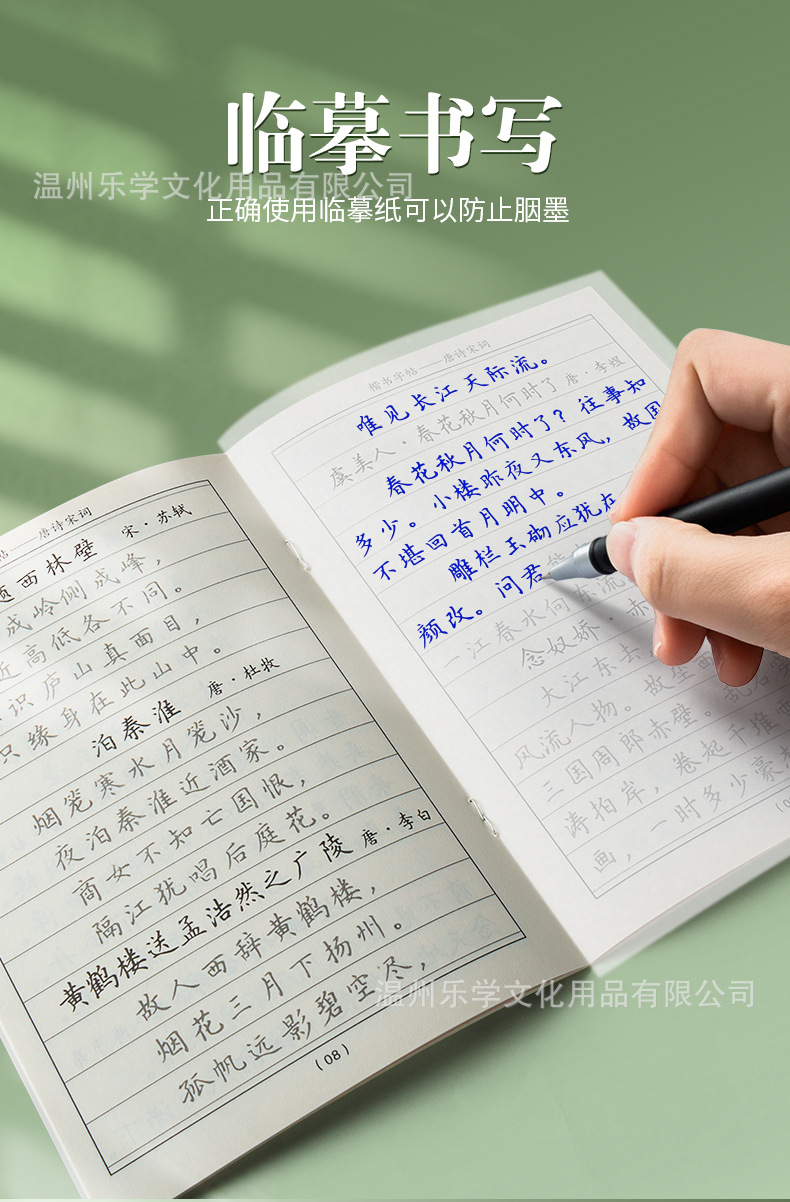 临摹书写
温州乐学文化用品有限公司
正确使用临摹纸可以防止胭墨
帖——唐诗宋词
题西林壁 宋·苏轼
成岭侧成峰，
近高低各不同。
识庐山真面目，
只缘身在此山中。
泊秦淮 唐·杜牧
烟笼寒水月笼沙，
夜泊秦淮近酒家。
商女不知亡国恨，
隔江犹唱后庭花。
黄鹤楼送孟浩然之广陵 唐·李白
故人西辞黄鹤楼，
烟花三月下扬州。
孤帆远影碧空尽，
(08)
楷书字帖——唐诗宋词
唯见长江天际流。
虞美人·春花秋月何时了 唐·李煜
春花秋月何时了？往事知
多少。小楼昨夜又东风，故国
不堪回首月明中。
雕栏玉砌应犹在
颜改。问君能
一江春水向东流
念奴娇·赤
大江东去
风流人物。故垒西
三国周郎赤壁。乱石穿
涛拍岸，卷起千堆
画，一时多少豪杰
温州乐学文化用品有限公司